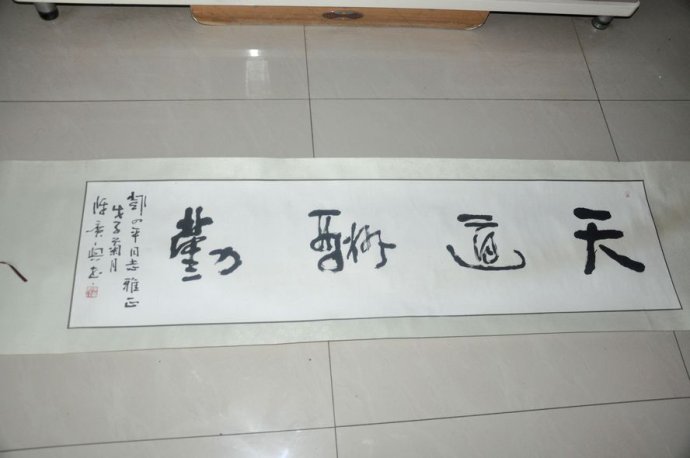 天道酬勤
平同志雅正
戊子菊月